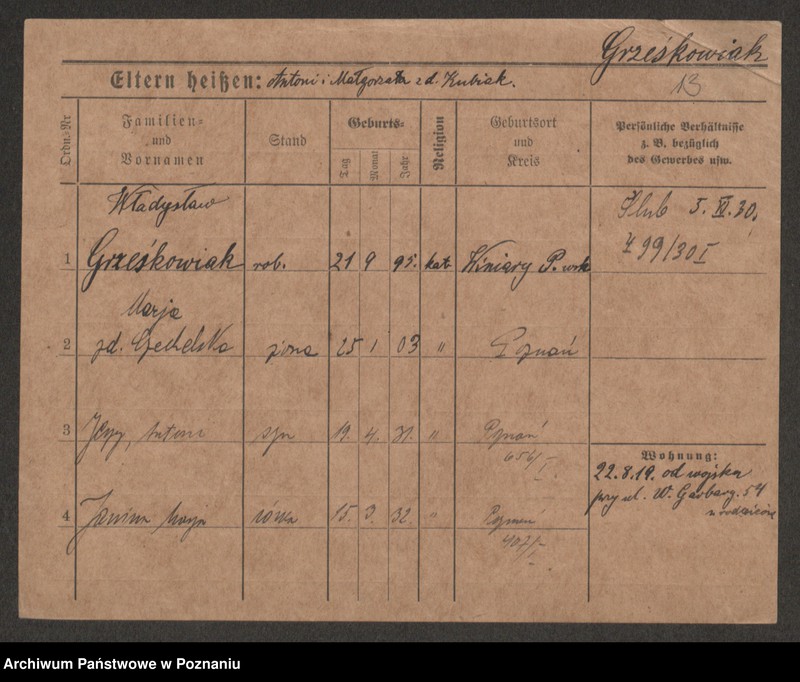 Grześkowiak
13
Eltern heißen: Antoni i Małgorzata z d. Kubiak.
Ordn.-Nr
Familien-
und
Vornamen
Stand
Geburts-
Tag
Monat
Jahr
Religion
Geburtsort
und
Kreis
Persönliche Verhältnisse
z. B. bezüglich
des Gewerbes usw.
Władysław
1 Grześkowiak rob. 21 9 95. kat. Winiary P.
Ślub 5. 30.
99/30 I
Marja
2 zd. żona 25 1 03 " Poznań
3 Jerzy, Antoni syn 19. 4. 31. " Poznań
654/I
4 Janina Marja córka 15. 3. 32. " Poznań
407/I
Wohnung:
22.8.19. od wojska
przy ul. W. Garbary. 54
u rodziców
Archiwum Państwowe w Poznaniu